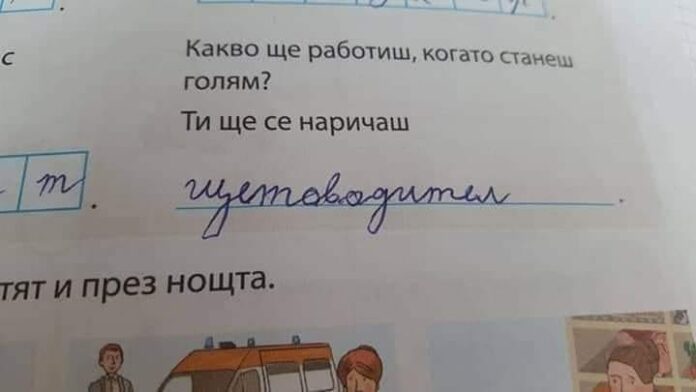 с
Какво ще работиш, когато станеш
голям?
Ти ще се наричаш
т.
щетоводител.
тят и през нощта.